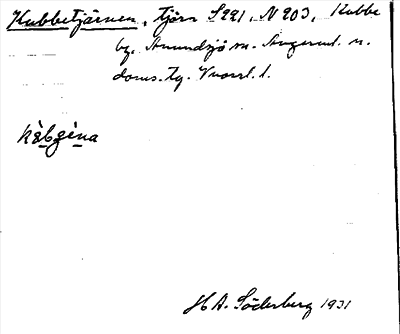 Kubbetjärnen, tjärn S 221, N 203, Kubbe
by, Anundsjö sn. Ångerml. n.
doms. tg. Vnorrl. l.
kèbʒèna
H A. Söderberg 1931